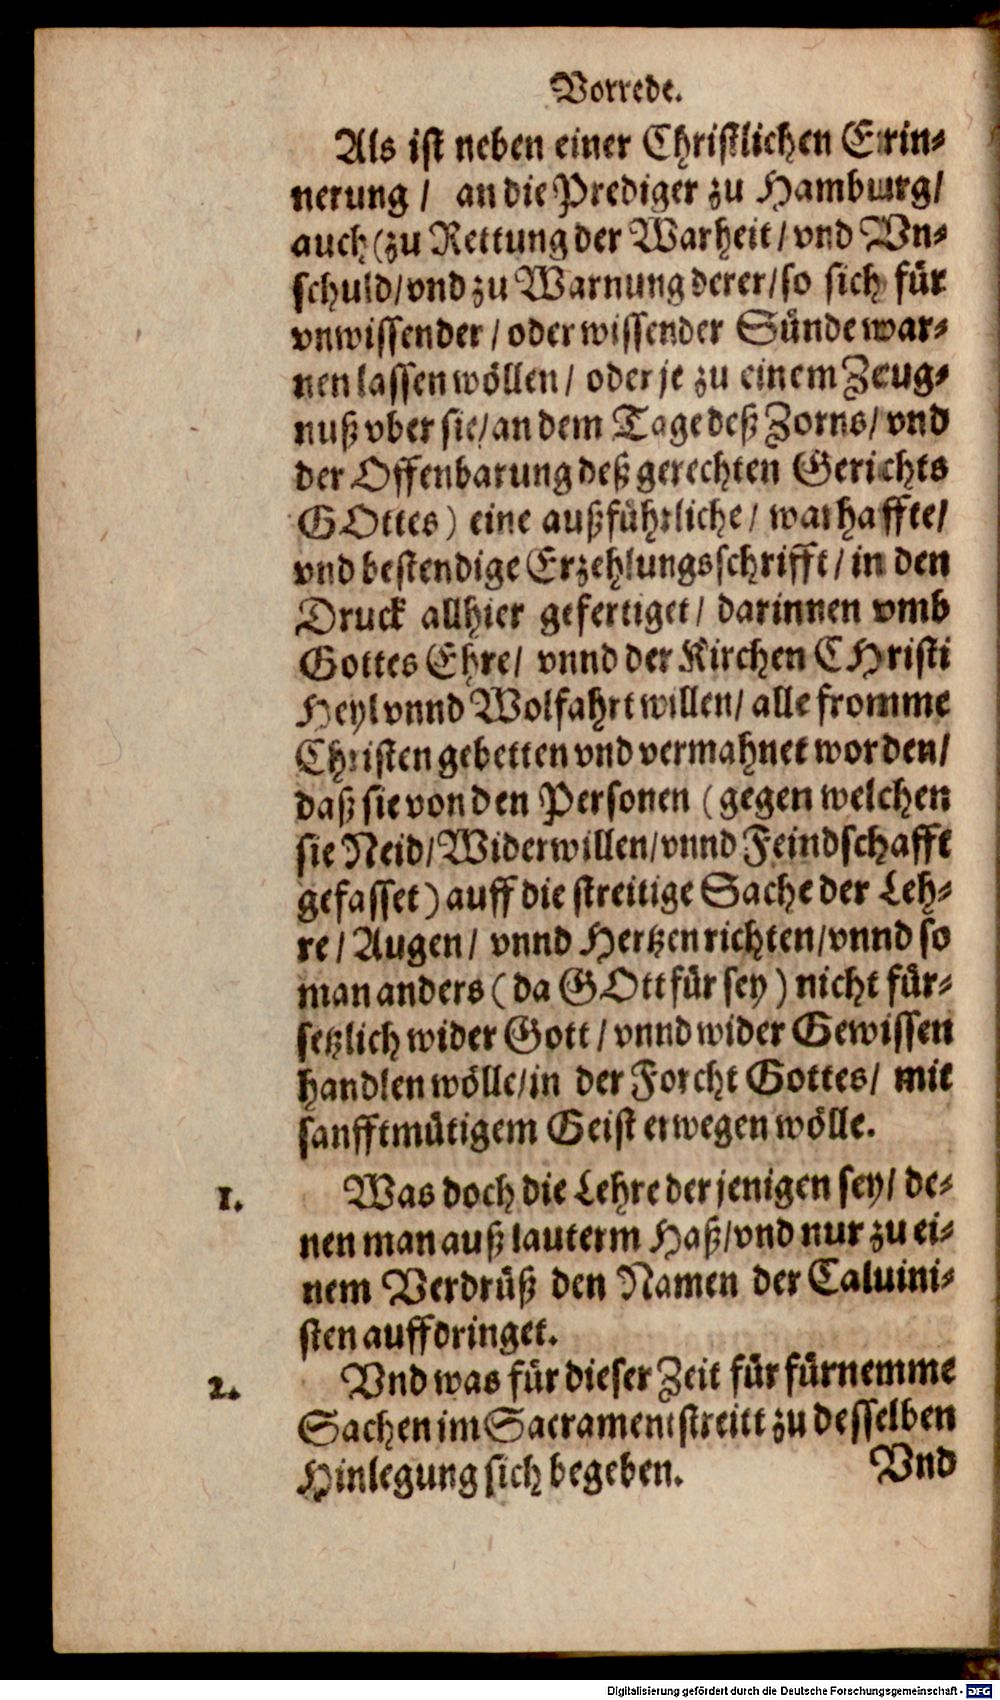 Vorrede.
Als ist neben einer Christlichen Erin-
nerung / an die Prediger zu Hamburg/
auch (zu Rettung der Warheit / vnd Vn-
schuld/vnd zu Warnung derer/so sich für
vnwissender / oder wissender Sünde war-
nen lassen wöllen / oder je zu einem Zeug-
nuß vber sie/an dem Tage deß Zorns/ vnd
der Offenbarung deß gerechten Gerichts
GOttes) eine außführliche / warhaffte/
vnd bestendige Erzehlungsschrifft / in den
Druck allhier gefertiget / darinnen vmb
Gottes Ehre/ vnnd der Kirchen CHristi
Heyl vnnd Wolfahrt willen/ alle fromme
Christen gebetten vnd vermahnet worden/
daß sie von den Personen (gegen welchen
sie Neid/Widerwillen/vnnd Feindschafft
gefasset) auff die streitige Sache der Leh-
re / Augen / vnnd Hertzen richten/vnnd so
man anders (da GOtt für sey) nicht für-
setzlich wider Gott / vnnd wider Gewissen
handlen wölle/in der Forcht Gottes/ mit
sanfftmütigem Geist erwegen wölle.
1. Was doch die Lehre der jenigen sey/ de-
nen man auß lauterm Haß/vnd nur zu ei-
nem Verdrüß den Namen der Caluini-
sten auffdringet.
2. Vnd was für dieser Zeit für fürnemme
Sachen im Sacramentstreitt zu desselben
Hinlegung sich begeben. Vnd
Digitalisierung gefördert durch die Deutsche Forschungsgemeinschaft - DFG